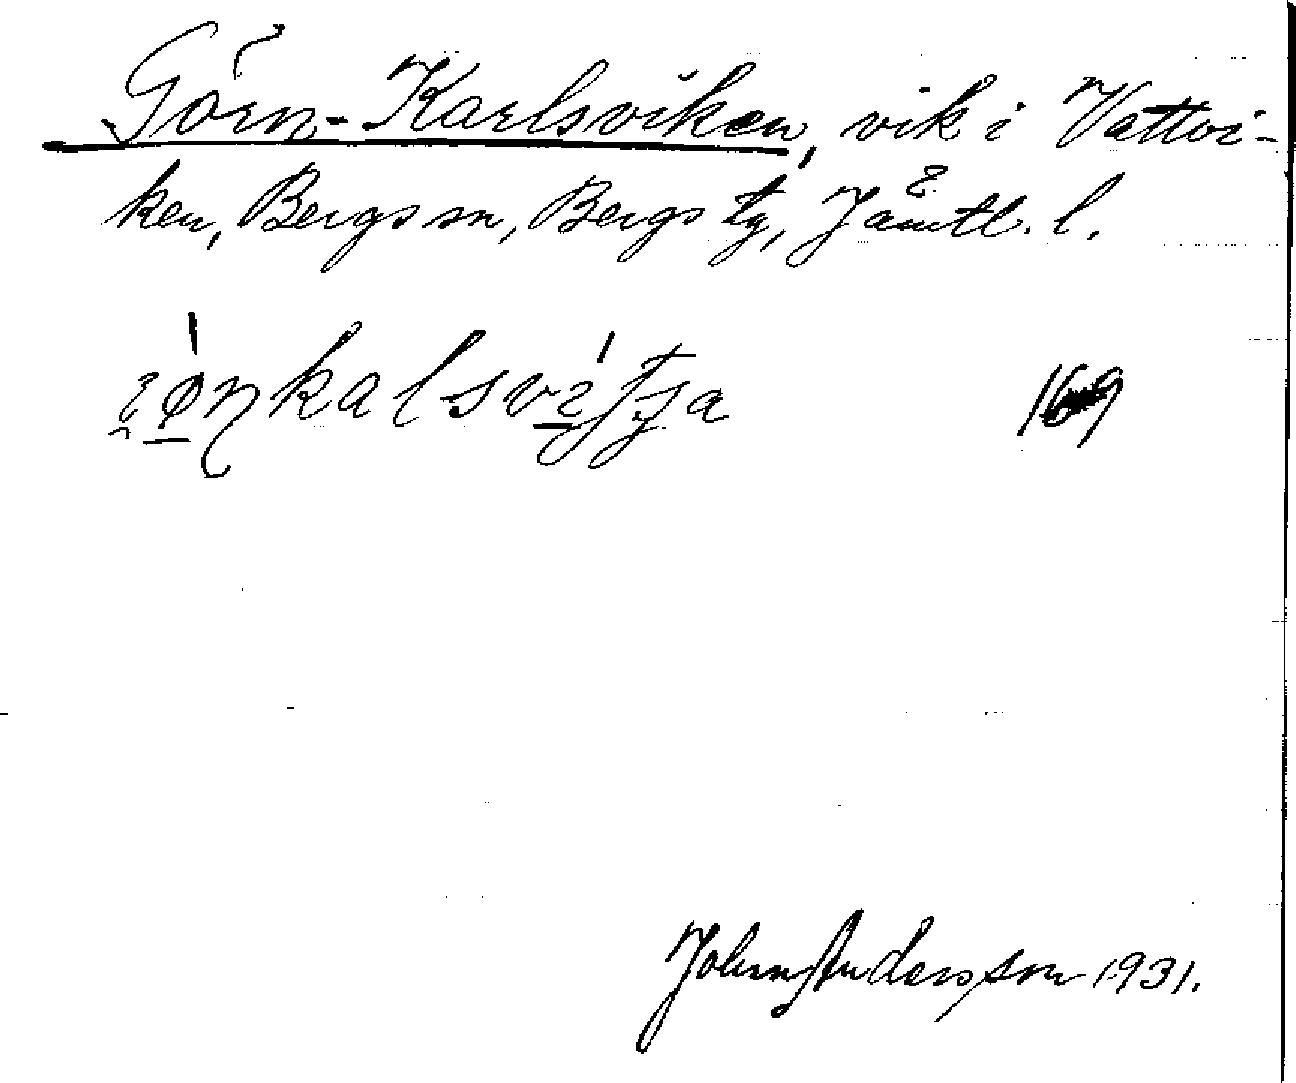 Görn-Karlsviken, vik i Vattvi-
ken, Bergs sn, Bergs tg, Jämtl. l.
169
John Andersson 1931.